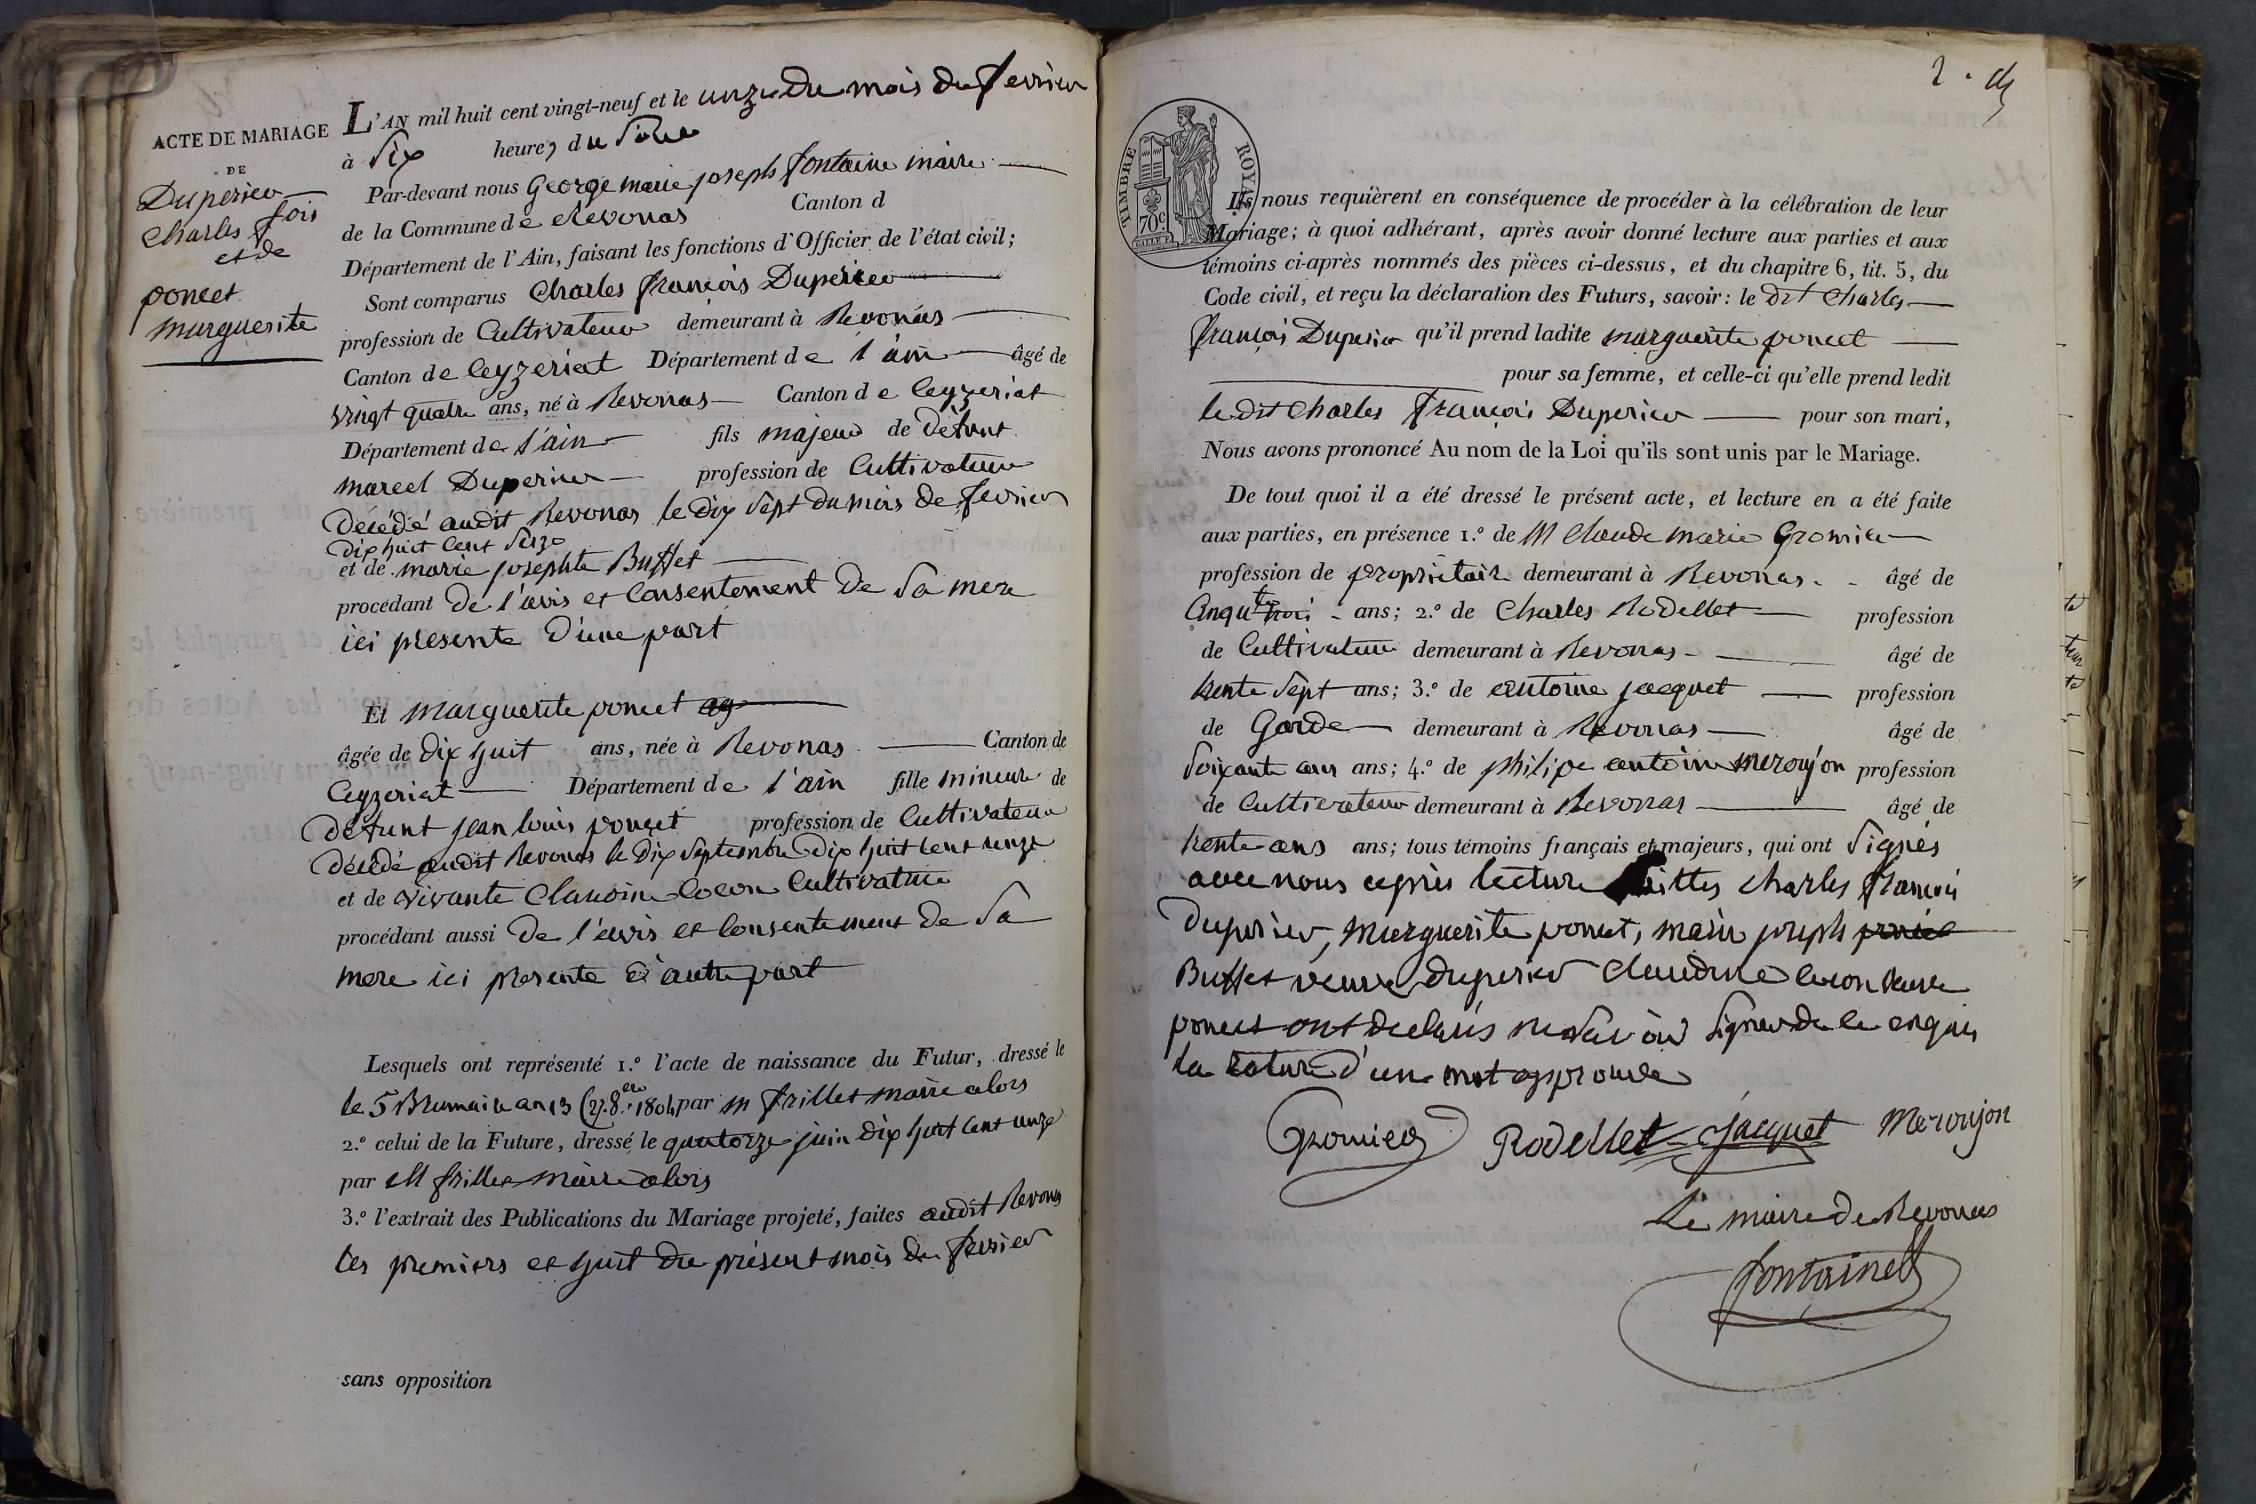 ACTE DE MARIAGE
DE
Duperier
Charles fois
et de
poncet
marguerite
L'AN mil huit cent vingt-neuf et le unze du mois de fevrier
à Six heures du Soir
Par-devant nous George marie joseph fontaine maire
de la Commune de Revonas Canton d
Département de l'Ain, faisant les fonctions d'Officier de l'état civil;
Sont comparus Charles françois Duperier
profession de Cultivateur demeurant à Revonas
Canton de Ceyzeriat Département de l'ain âgé de
vingt quatre ans, né à Revonas Canton de Ceyzeriat
Département de l'ain fils majeur de défunt
marcel Duperier profession de Cultivateur
Décédé audit Revonas le dix Sept du mois de fevrier
dix huit cent Seize
et de marie josephte Buffet
procédant De l'avis et Consentement de Sa mere
ici presente D'une part
Et marguerite poncet ag
âgée de dix huit ans, née à Revonas Canton de
Ceyzeriat Département de l'ain fille mineure de
défunt jean louis poncet profession de Cultivateur
décédé audit Revonas le Dix Septembre Dix huit cent unze
et de vivante Claudine Cocon Cultivatrice
procédant aussi De l'avis et Consentement de Sa
mere ici presente d'autre part
Lesquels ont représenté 1.º l'acte de naissance du Futur, dressé le
le 5 Brumaire an 13 (27 8.bre 1804 par m frillet maire alors
2.º celui de la Future, dressé le quatorze juin dix huit cent unze
par M frillet maire alors
3.º l'extrait des Publications du Mariage projeté, faites audit Revonas
les premiers et huit du présent mois de fevrier
sans opposition
2.
TIMBRE ROYAL
70c.
Ils nous requièrent en conséquence de procéder à la célébration de leur
Mariage; à quoi adhérant, après avoir donné lecture aux parties et aux
témoins ci-après nommés des pièces ci-dessus, et du chapitre 6, tit. 5, du
Code civil, et reçu la déclaration des Futurs, savoir: le dit Charles
françois Duperier qu'il prend ladite marguerite poncet
pour sa femme, et celle-ci qu'elle prend ledit
le dit Charles françois Duperier pour son mari,
Nous avons prononcé Au nom de la Loi qu'ils sont unis par le Mariage.
De tout quoi il a été dressé le présent acte, et lecture en a été faite
aux parties, en présence 1.º de M Claude marie Gromier
profession de proprietaire demeurant à Revonas âgé de
Cinqute trois ans; 2.º de Charles Rodellet profession
de Cultivateur demeurant à Revonas âgé de
trente Sept ans; 3.º de antoine jacquet profession
de Garde demeurant à Revonas âgé de
Soixante ans ans; 4.º de philipe antoine meroujon profession
de Cultivateur demeurant à Revonas âgé de
trente ans ans; tous témoins français et majeurs, qui ont Signés
avec nous après lecture faittes Charles françois
Duperier, marguerite poncet, marie joseph
Buffet veuve duperier Claudine Cocon veuve
poncet ont declarés ne Savoir Signer de ce enquis
la rature d'un mot approuvée
Gromier Rodellet Jacquet Meroujon
Le maire de Revonas
fontaine